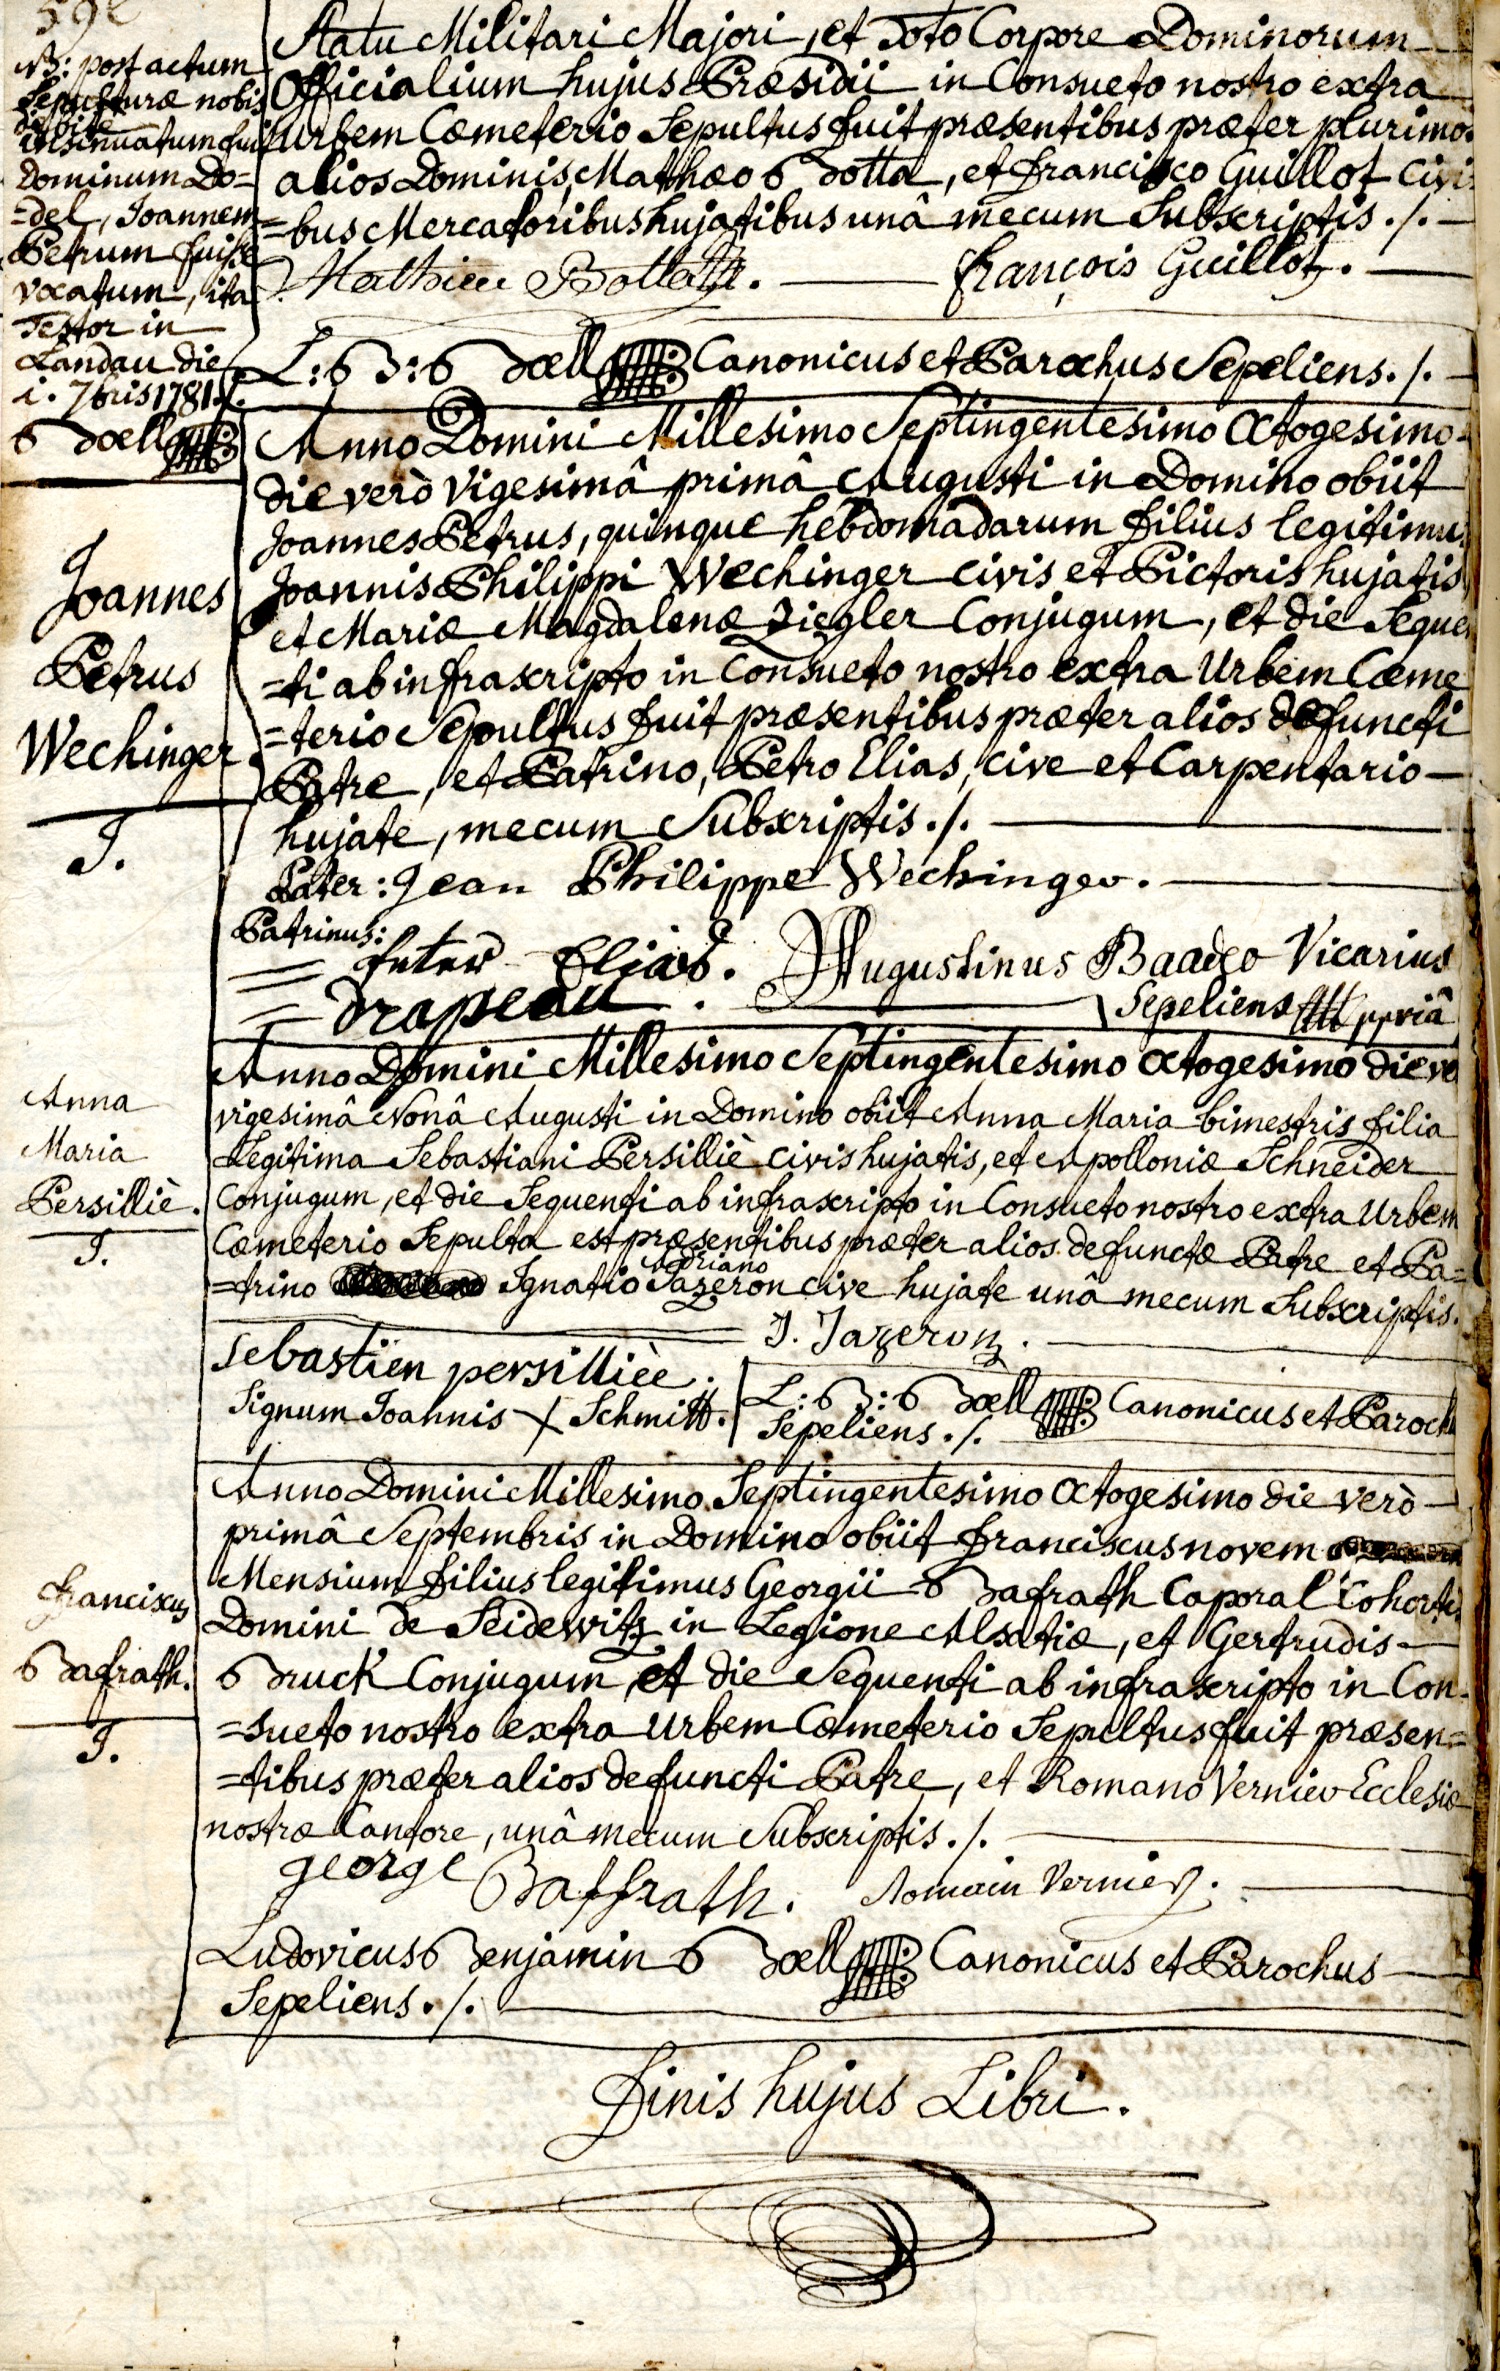 592
NB: post actum
Sepulturæ nobis
debite
insinuatum fuit
Dominum Do=
=del, Joannem
Petrum fuisse
vocatum, ita
Testor in
Landau die
1. 7bris 1781./.
Boell
Statu Militari Majori, et Toto Corpore Dominorum
Officialium hujus Præsidii in Consueto nostro extra
Urbem Cœmeterio Sepultus fuit præsentibus præter plurimos
alios Dominis, Mathæo Botta, et Francisco Guillot Civi=
=bus Mercatoribus hujatibus unâ mecum Subscriptis ./.
Mathieu Botta. François Guillot.
L: B: Boell Canonicus et Parochus Sepeliens ./.
Joannes
Petrus
Wechinger
J.
Anno Domini Millesimo Septingentesimo Octogesimo
die verò vigesimâ primâ Augusti in Domino obiit
Joannes Petrus, quinque hebdomadarum filius legitimus
Joannis Philippi Wechinger civis et Pictoris hujatis
et Mariæ Magdalenæ Ziegler Conjugum, et die Sequen
=ti ab infrascripto in Consueto nostro extra Urbem Cœme
=terio Sepultus fuit præsentibus præter alios defuncti
Patre, et Patrino, Petro Elias, cive et Carpentario
hujate, mecum Subscriptis ./.
Pater: Jean Philippe Wechinger.
Patrinus:
Peter Elias. Augustinus Baader Vicarius
Drapeau. Sepeliens ppriâ
Anna
Maria
Persilliè.
J.
Anno Domini Millesimo Septingentesimo Octogesimo die ve
vigesimâ Nonâ Augusti in Domino obiit Anna Maria bimestris filia
Legitima Sebastiani Persilliè civis hujatis, et Apolloniæ Schneider
Conjugum, et die Sequenti ab infrascripto in Consueto nostro extra Urbem
Cœmeterio Sepulta est præsentibus præter alios defunctæ Patre et Pa=
Adriano
=trino Ignatio Jazeron cive hujate unâ mecum Subscriptis.
J. Jazeron.
Sebastien persillièe.
Signum Joannis X Schmitt. L: B: Boell Canonicus et Paroch
Sepeliens ./.
Franciscus
Bafrath.
J.
Anno Domini Millesimo Septingentesimo Octogesimo die verò
primâ Septembris in Domino obiit Franciscus novem
Mensium filius legitimus Georgii Bafrath Caporal Cohortis
Domini de Seidewitz in Legione Alsatiæ, et Gertrudis
Bruck Conjugum, et die Sequenti ab infrascripto in Con=
=sueto nostro extra Urbem Cœmeterio Sepultus fuit præsen=
=tibus præter alios defuncti Patre, et Romano Vernier Ecclesiæ
nostræ Cantore, unâ mecum Subscriptis ./.
george Baffrath. Romain Vernier.
Ludovicus Benjamin Boell Canonicus et Parochus
Sepeliens ./.
Finis hujus Libri.